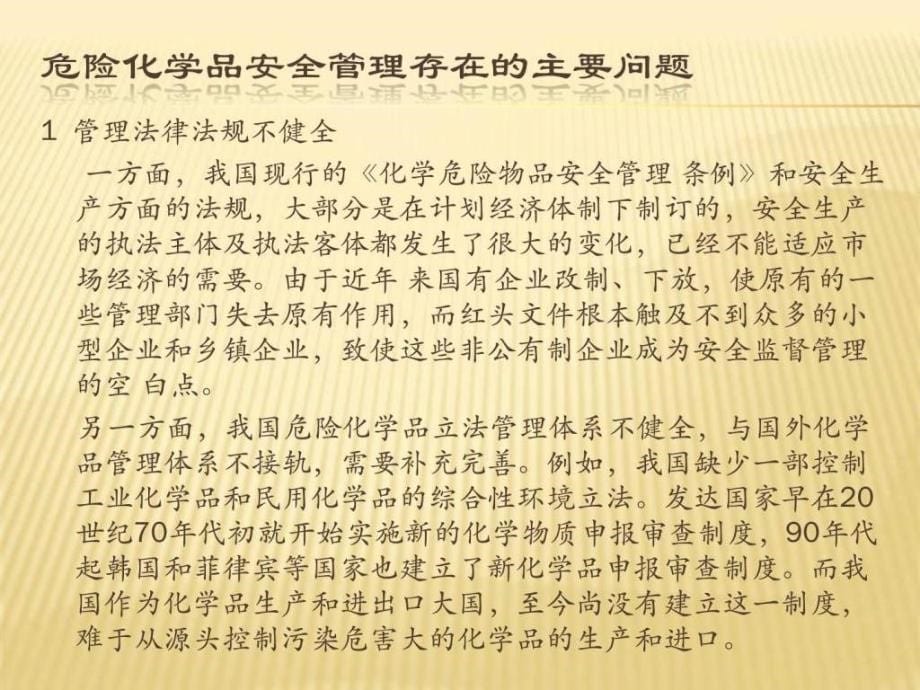 危险化学品安全管理存在的主要问题
1 管理法律法规不健全
一方面，我国现行的《化学危险物品安全管理 条例》和安全生
产方面的法规，大部分是在计划经济体制下制订的，安全生产
的执法主体及执法客体都发生了很大的变化，已经不能适应市
场经济的需要。由于近年 来国有企业改制、下放，使原有的一
些管理部门失去原有作用，而红头文件根本触及不到众多的小
型企业和乡镇企业，致使这些非公有制企业成为安全监督管理
的空 白点。
另一方面，我国危险化学品立法管理体系不健全，与国外化学
品管理体系不接轨，需要补充完善。例如，我国缺少一部控制
工业化学品和民用化学品的综合性环境立法。发达国家早在20
世纪70年代初就开始实施新的化学物质申报审查制度，90年代
起韩国和菲律宾等国家也建立了新化学品申报审查制度。而我
国作为化学品生产和进出口大国，至今尚没有建立这一制度，
难于从源头控制污染危害大的化学品的生产和进口。